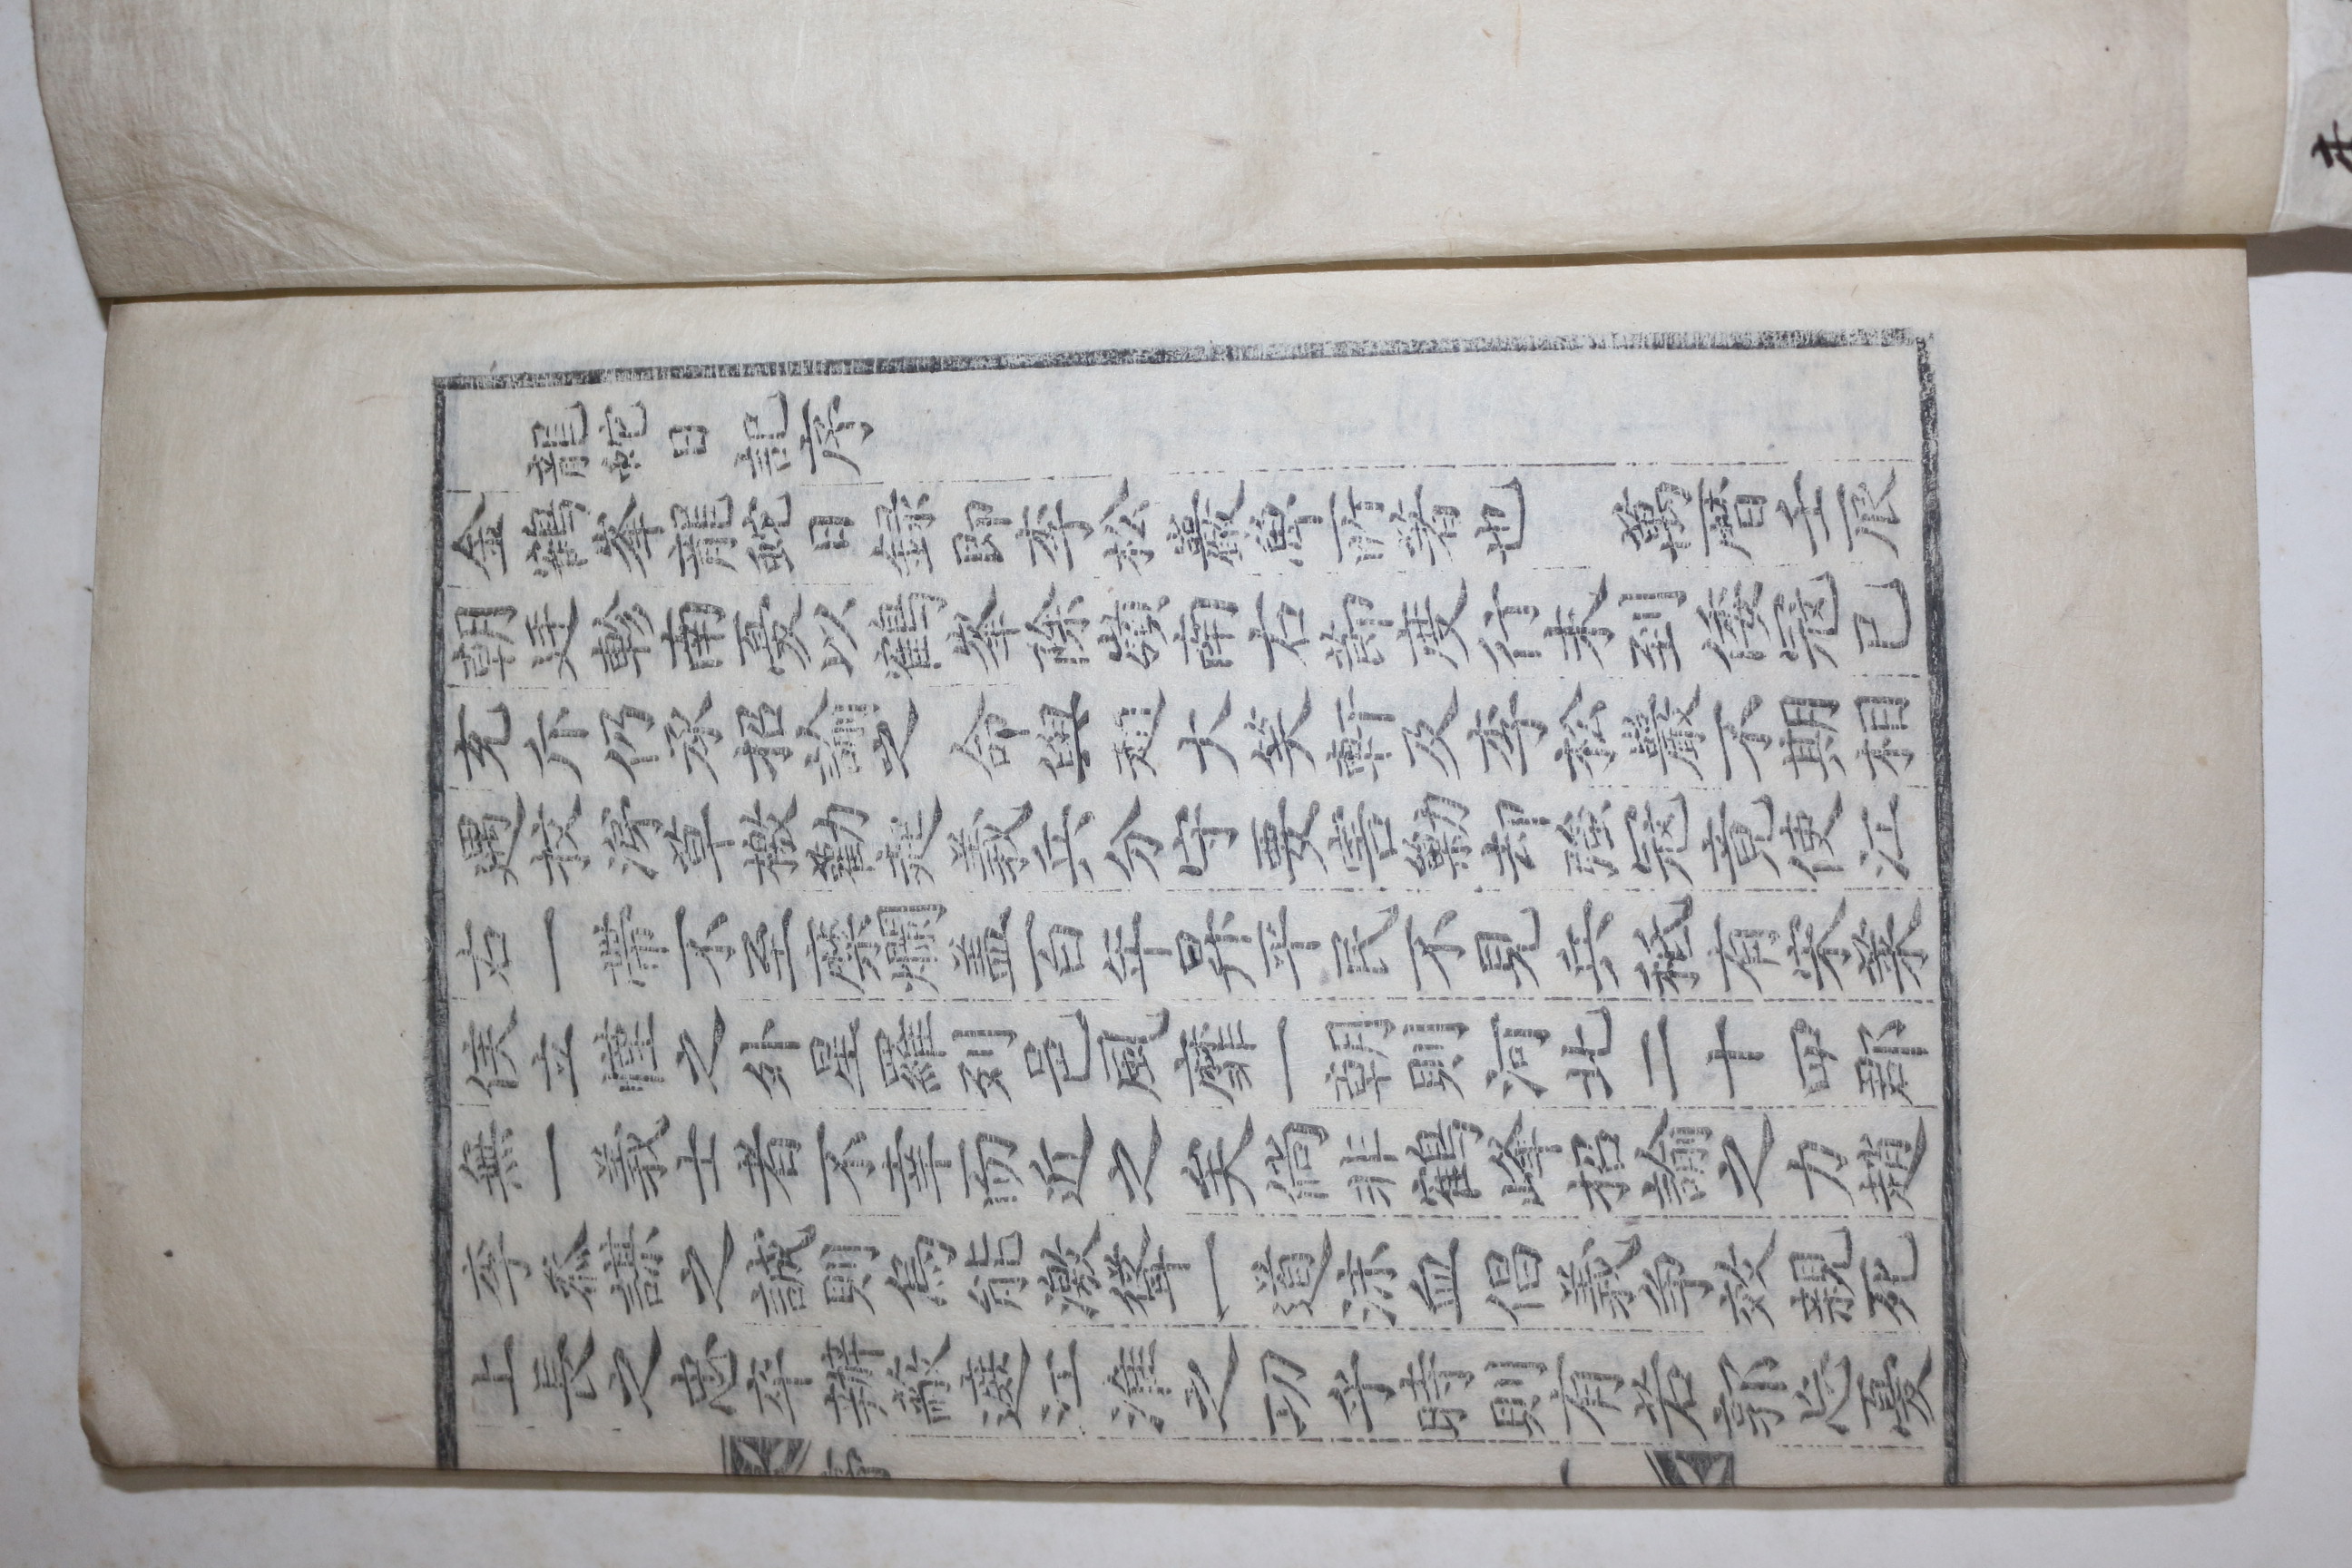 龍蛇日記序
金鶴峯龍蛇日録即李松巖魯所著也 萬曆壬辰
朝廷軫南憂以鶴峯除嶺南右節度行未到倭冦已
充斥仍承招諭之 命與趙大笑軒及李松巖不期相
遇扙淂草檄勸起義兵分守要害勦却強冦竟使江
右一帶不至糜爛盖百年昇平民不見兵秪有宋萊
侯立慬之外星羅列邑風靡一朝則河北二十四郡
無一義士者不幸而近之矣倘非鶴峰招諭之力趙
李叅謀之誠則烏能激聳一道沫血倡義争效親死
上長之忠卒辦蔽遮江淮之功乎時則有若郭忘憂
序
一